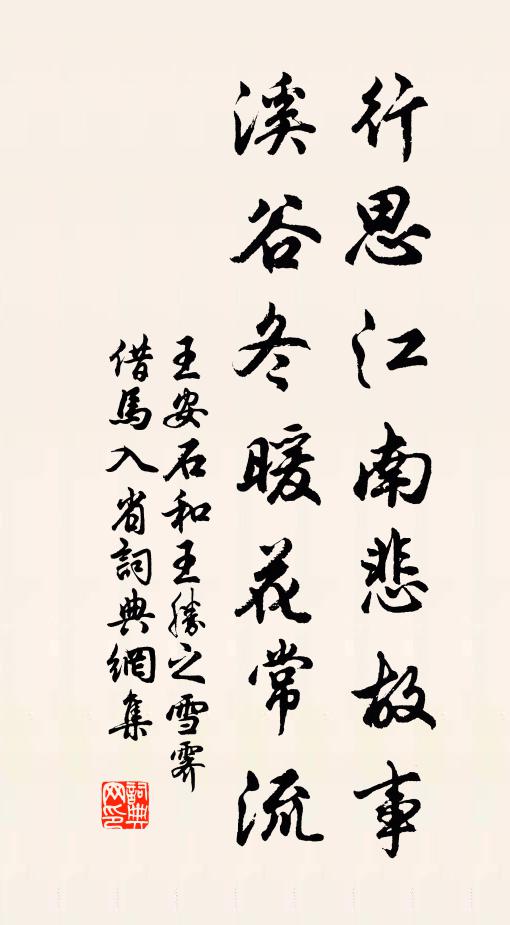 行思江南悲故事
溪谷冬暖花常流
王安石和王勝之雪霽
借馬入省詞典網集
詞典网印